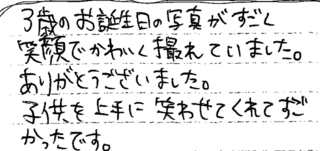 3歳のお誕生日の写真がすごく
笑顔でかわいく撮れていました。
ありがとうございました。
子供を上手に笑わせてくれてすご
かったです。